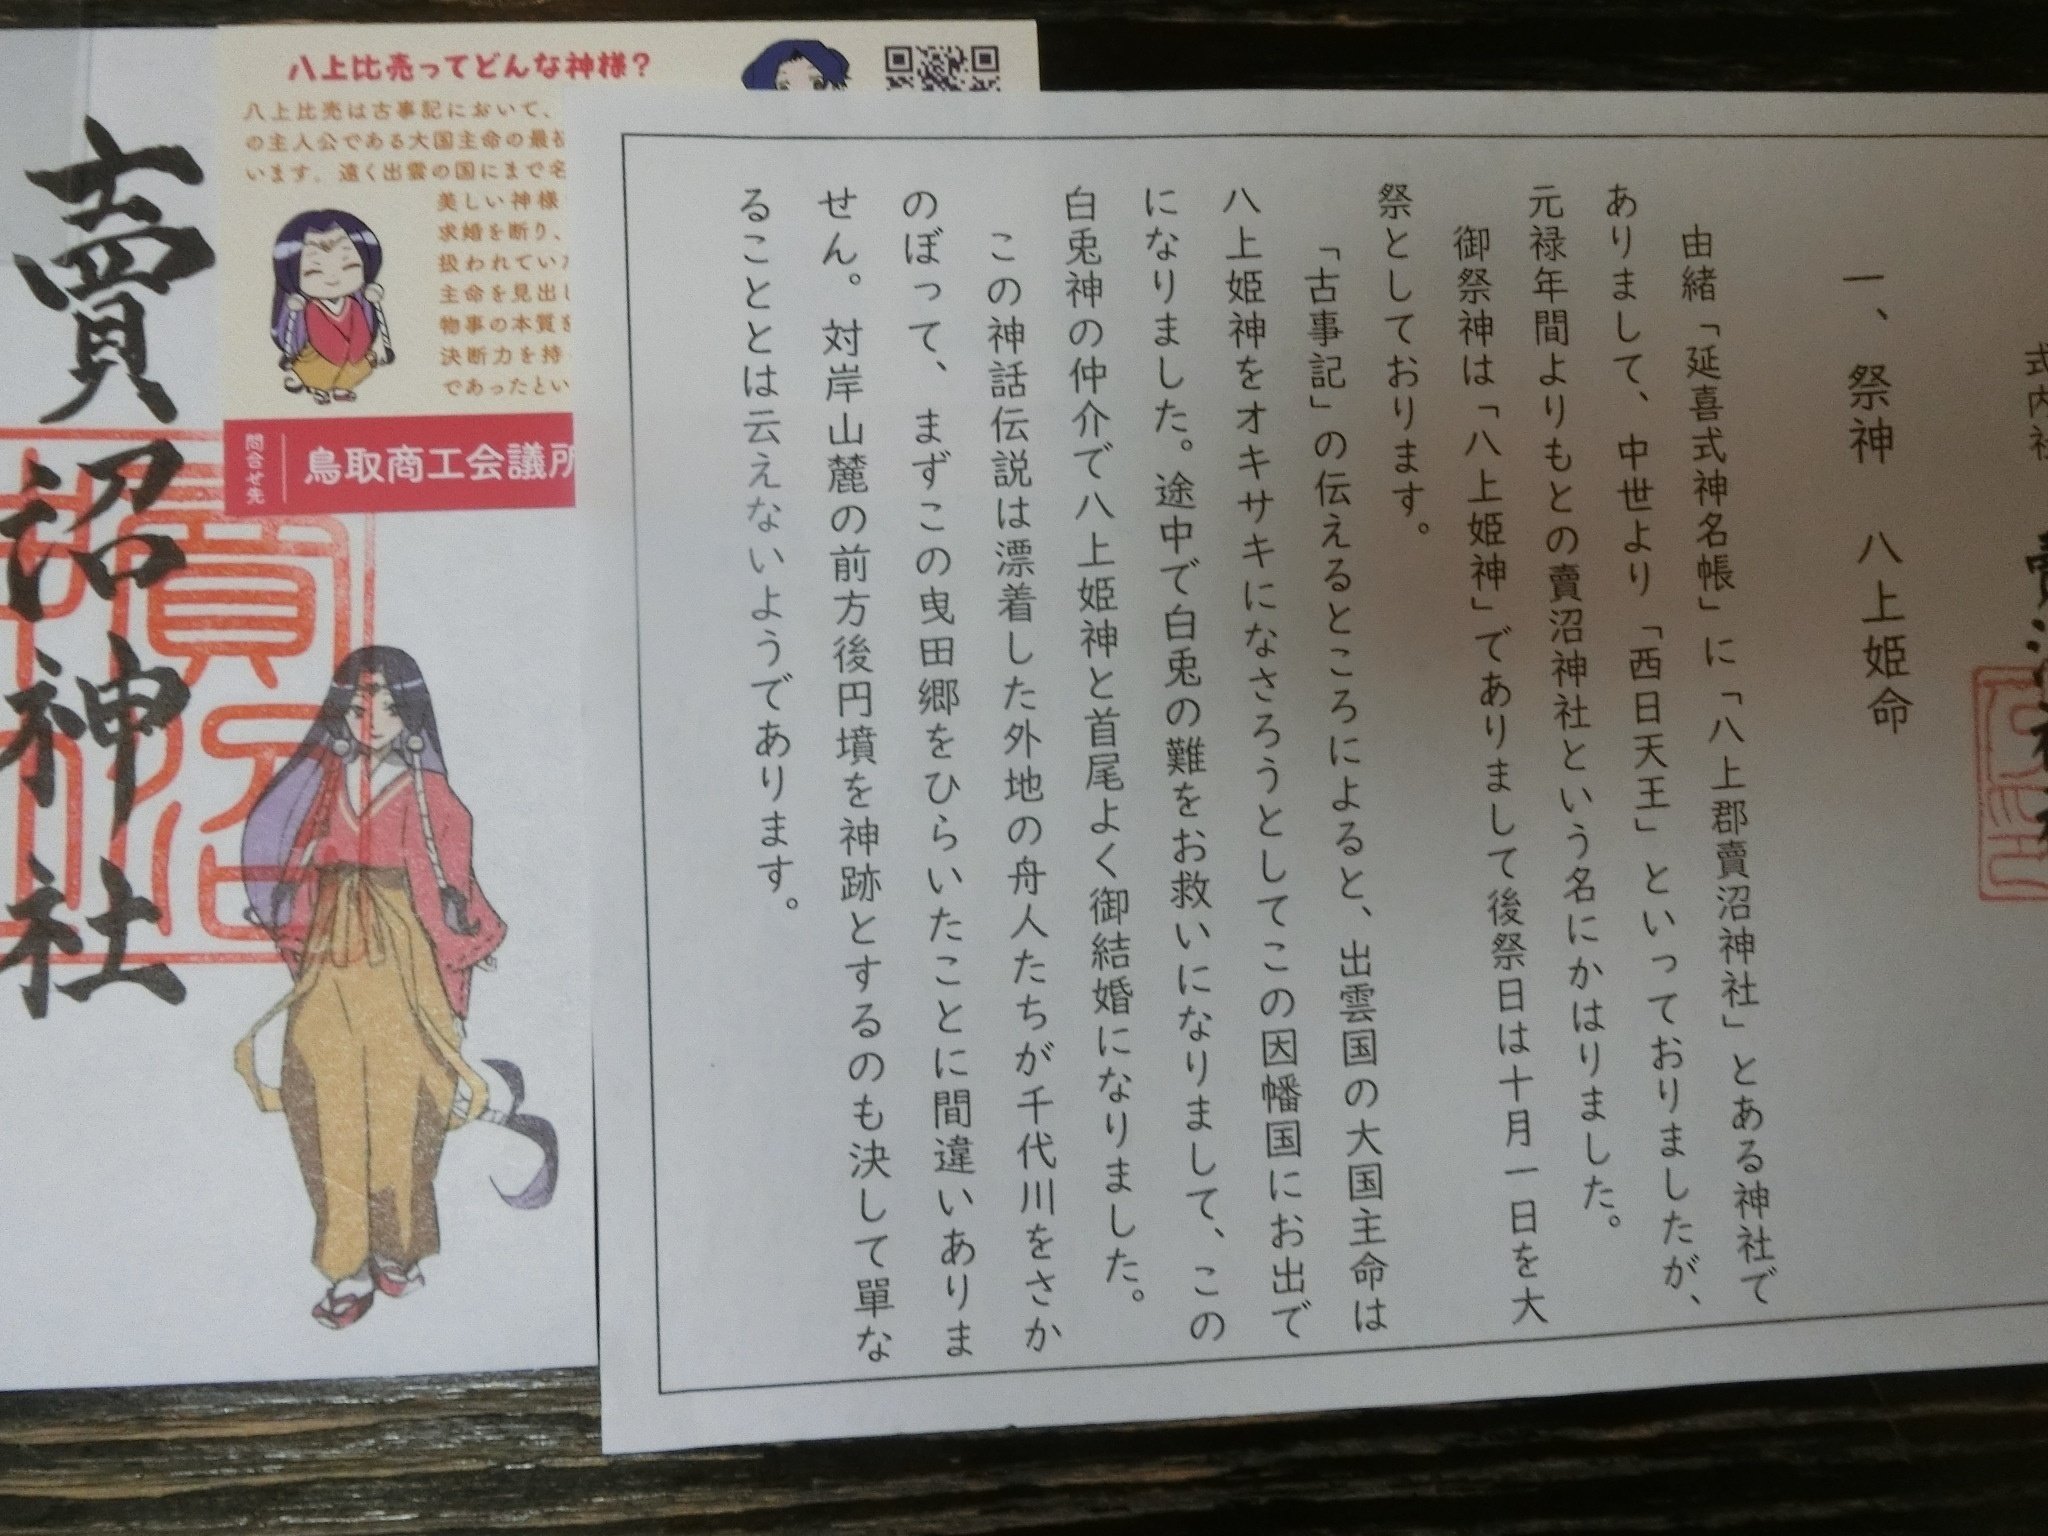 賣沼神社
八上比売ってどんな神様?
八上比売は古事記において、
の主人公である大国主命の最初
います。遠く出雲の国にまで名
美しい神様
求婚を断り、
扱われてい
主命を見出し
物事の本質を
決断力を持
であったとい
問合せ先
鳥取商工会議所
式内社
一、祭神 八上姫命
由緒「延喜式神名帳」に「八上郡賣沼神社」とある神社で
ありまして、中世より「西日天王」といっておりましたが、
元禄年間よりもとの賣沼神社という名にかはりました。
御祭神は「八上姫神」でありまして後祭日は十月一日を大
祭としております。
「古事記」の伝えるところによると、出雲国の大国主命は
八上姫神をオキサキになさろうとしてこの因幡国にお出で
になりました。途中で白兎の難をお救いになりまして、この
白兎神の仲介で八上姫神と首尾よく御結婚になりました。
この神話伝説は漂着した外地の舟人たちが千代川をさか
のぼって、まずこの曳田郷をひらいたことに間違いありま
せん。対岸山麓の前方後円墳を神跡とするのも決して單な
ることとは云えないようであります。